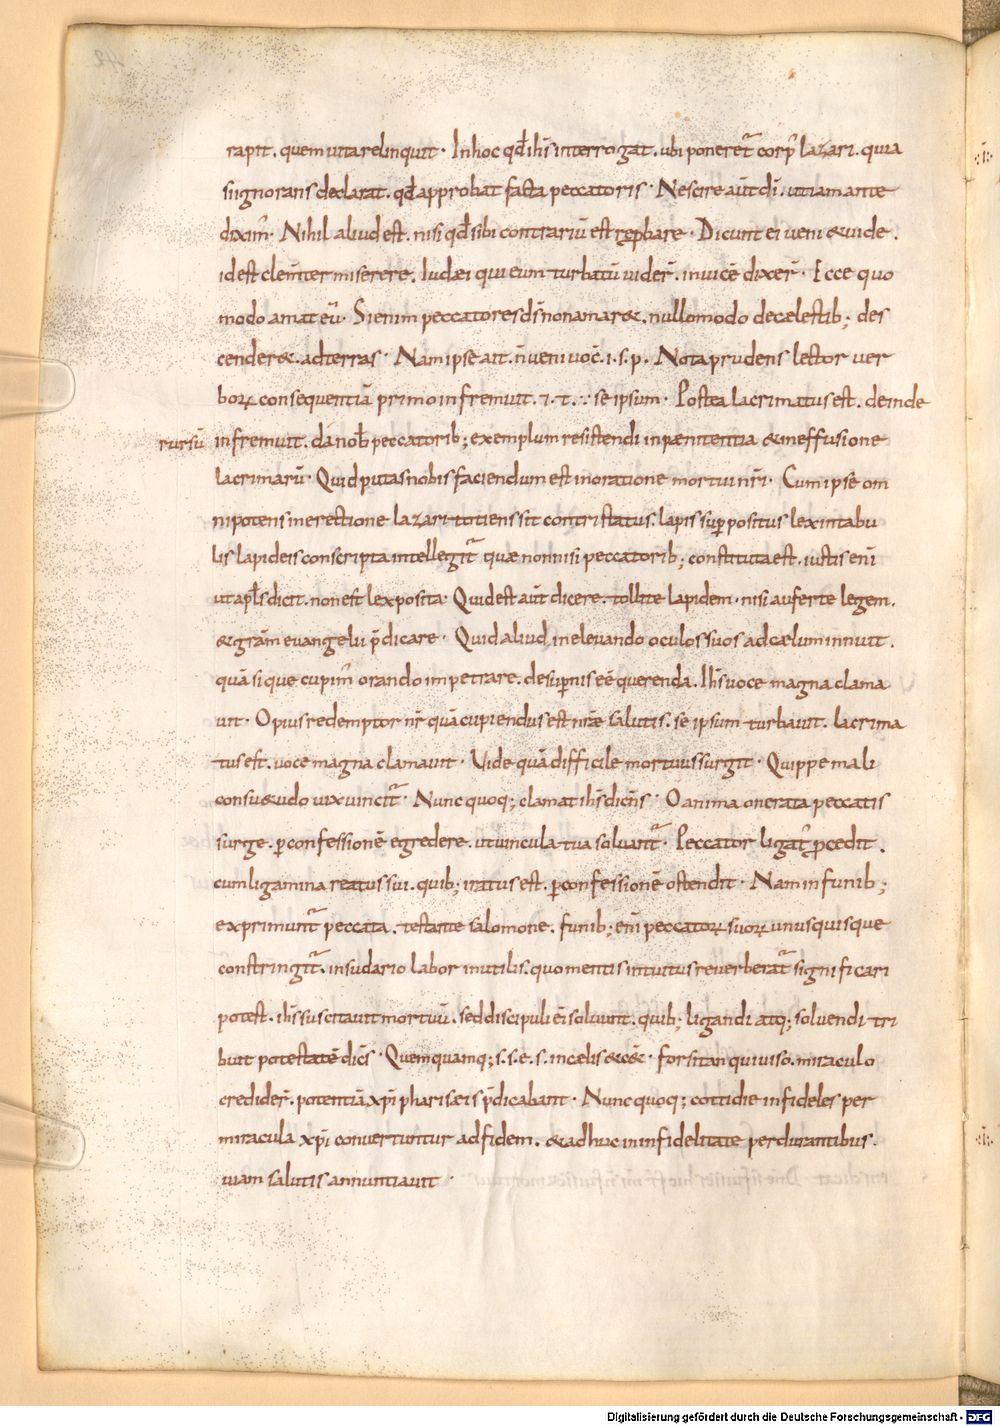 rapit. quem uita relinquit · In hoc qđ ihs interrogat. ubi poneret᷑ corp᷒ lazari. quia
si ignorans declarat. qđ approbat facta peccatoris · Nescire aūt dī. ut iam ante
diximꝰ. Nihil aliud est. nisi qđ sibi contrariū est rep̱bare · Dicunt ei ueni & uide.
id est clem̄ter miserere. Iudæi qui eum turbatū uider̄. inuicē dixer̄ · Ecce quo
modo amat eū · Si enim peccatores d̄s non amar&. nullomodo de cælestib; des
cender&. ad terras · Nam ipse ait. n̄ ueni uoc̄. i. s. p. Nota prudens lector uer
borꝝ consequentiā primo infremuit. &. t. ∵ se ipsum · Postea lacrimatus est. deinde
rursū infremuit. dā nob̄ peccatorib; exemplum resistendi in pænitentia & in effusione
lacrimarū · Quid putas nobis faciendum est in oratione mortui n̄ri · Cum ipse om
nipotens in erectione lazari totiens sit contristatus. lapis suꝑpositus lex in tabu
lis lapideis conscripta intellegit᷑ quæ non nisi peccatorib; constituta est. iustis eni
ut apl̄s dicit. non est lex posita · Quid est aūt dicere. tollite lapidem. nisi auferte legem.
& grām euangelii p̄dicare · Quid aliud in eleuando oculos suos ad cælum innuit.
quā si que cupimꝰ orando impetrare. de suꝑnis eē querenda. Ihs uoce magna clama
uit · O pius redemptor n̄r quā cupiendus est nr̄æ salutis. se ipsum turbauit. lacrima
tus est. uoce magna clamauit · Uide quā difficile mortuus surgit · Quippe mali
consu&udo uix uincit᷑ · Nunc quoq; clamat ihs dicn̄s · O anima onerata peccatis
surge. ꝑ confessionē egredere. ut uincula tua soluant᷑ · Peccator ligatꝰ ꝓcedit.
cum ligamina reatus sui. quib; iratus est. ꝑ confessionē ostendit · Nam in funib;
exprimunt᷑ peccata. testante salomone. funib; eni peccatorꝝ suorꝝ unusquisque
constringit᷑. in sudario labor inutilis. quo mentis intuitus reuerberat᷑ significari
potest. ihs suscitauit mortuū. sed discipuli ei soluunt. quib; ligandi atq; soluendi tri
buit potestatē dic̄s · Quemquamq; s. s. e. s. in cælis & c&̄ · forsitan qui uiso. miraculo
credider̄. potentiā xp̄i pharisæis p̄dicabant · Nunc quoq; cottidie infideles per
miracula xp̄i conuertuntur ad fidem. & adhuc in infidelitate perdurantibus.
uiam salutis annuntiauit ·
Digitalisierung gefördert durch die Deutsche Forschungsgemeinschaft - DFG